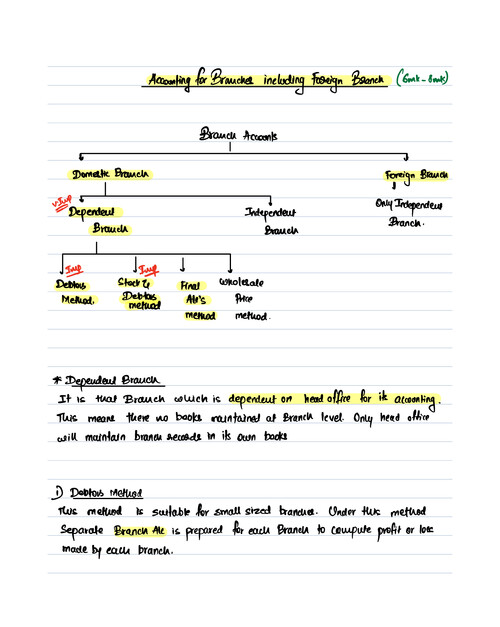 Accounting for Branches including Foreign Branch (6mk - 8mk)
Branch Accounts
Domestic Branch
Foreign Branch
v.Imp
Dependent Branch
Independent Branch
Only Independent Branch.
Imp
Debtors Method.
Imp
Stock & Debtors method
Final A/c's method
Wholesale Price method.
* Dependent Branch
It is that Branch which is dependent on head office for its accounting.
This means there no books maintained at Branch level. Only head office
will maintain branch records in its own books
i) Debtors Method
This method is suitable for small sized branches. Under this method
Separate Branch A/c is prepared for each Branch to compute profit or loss
made by each branch.